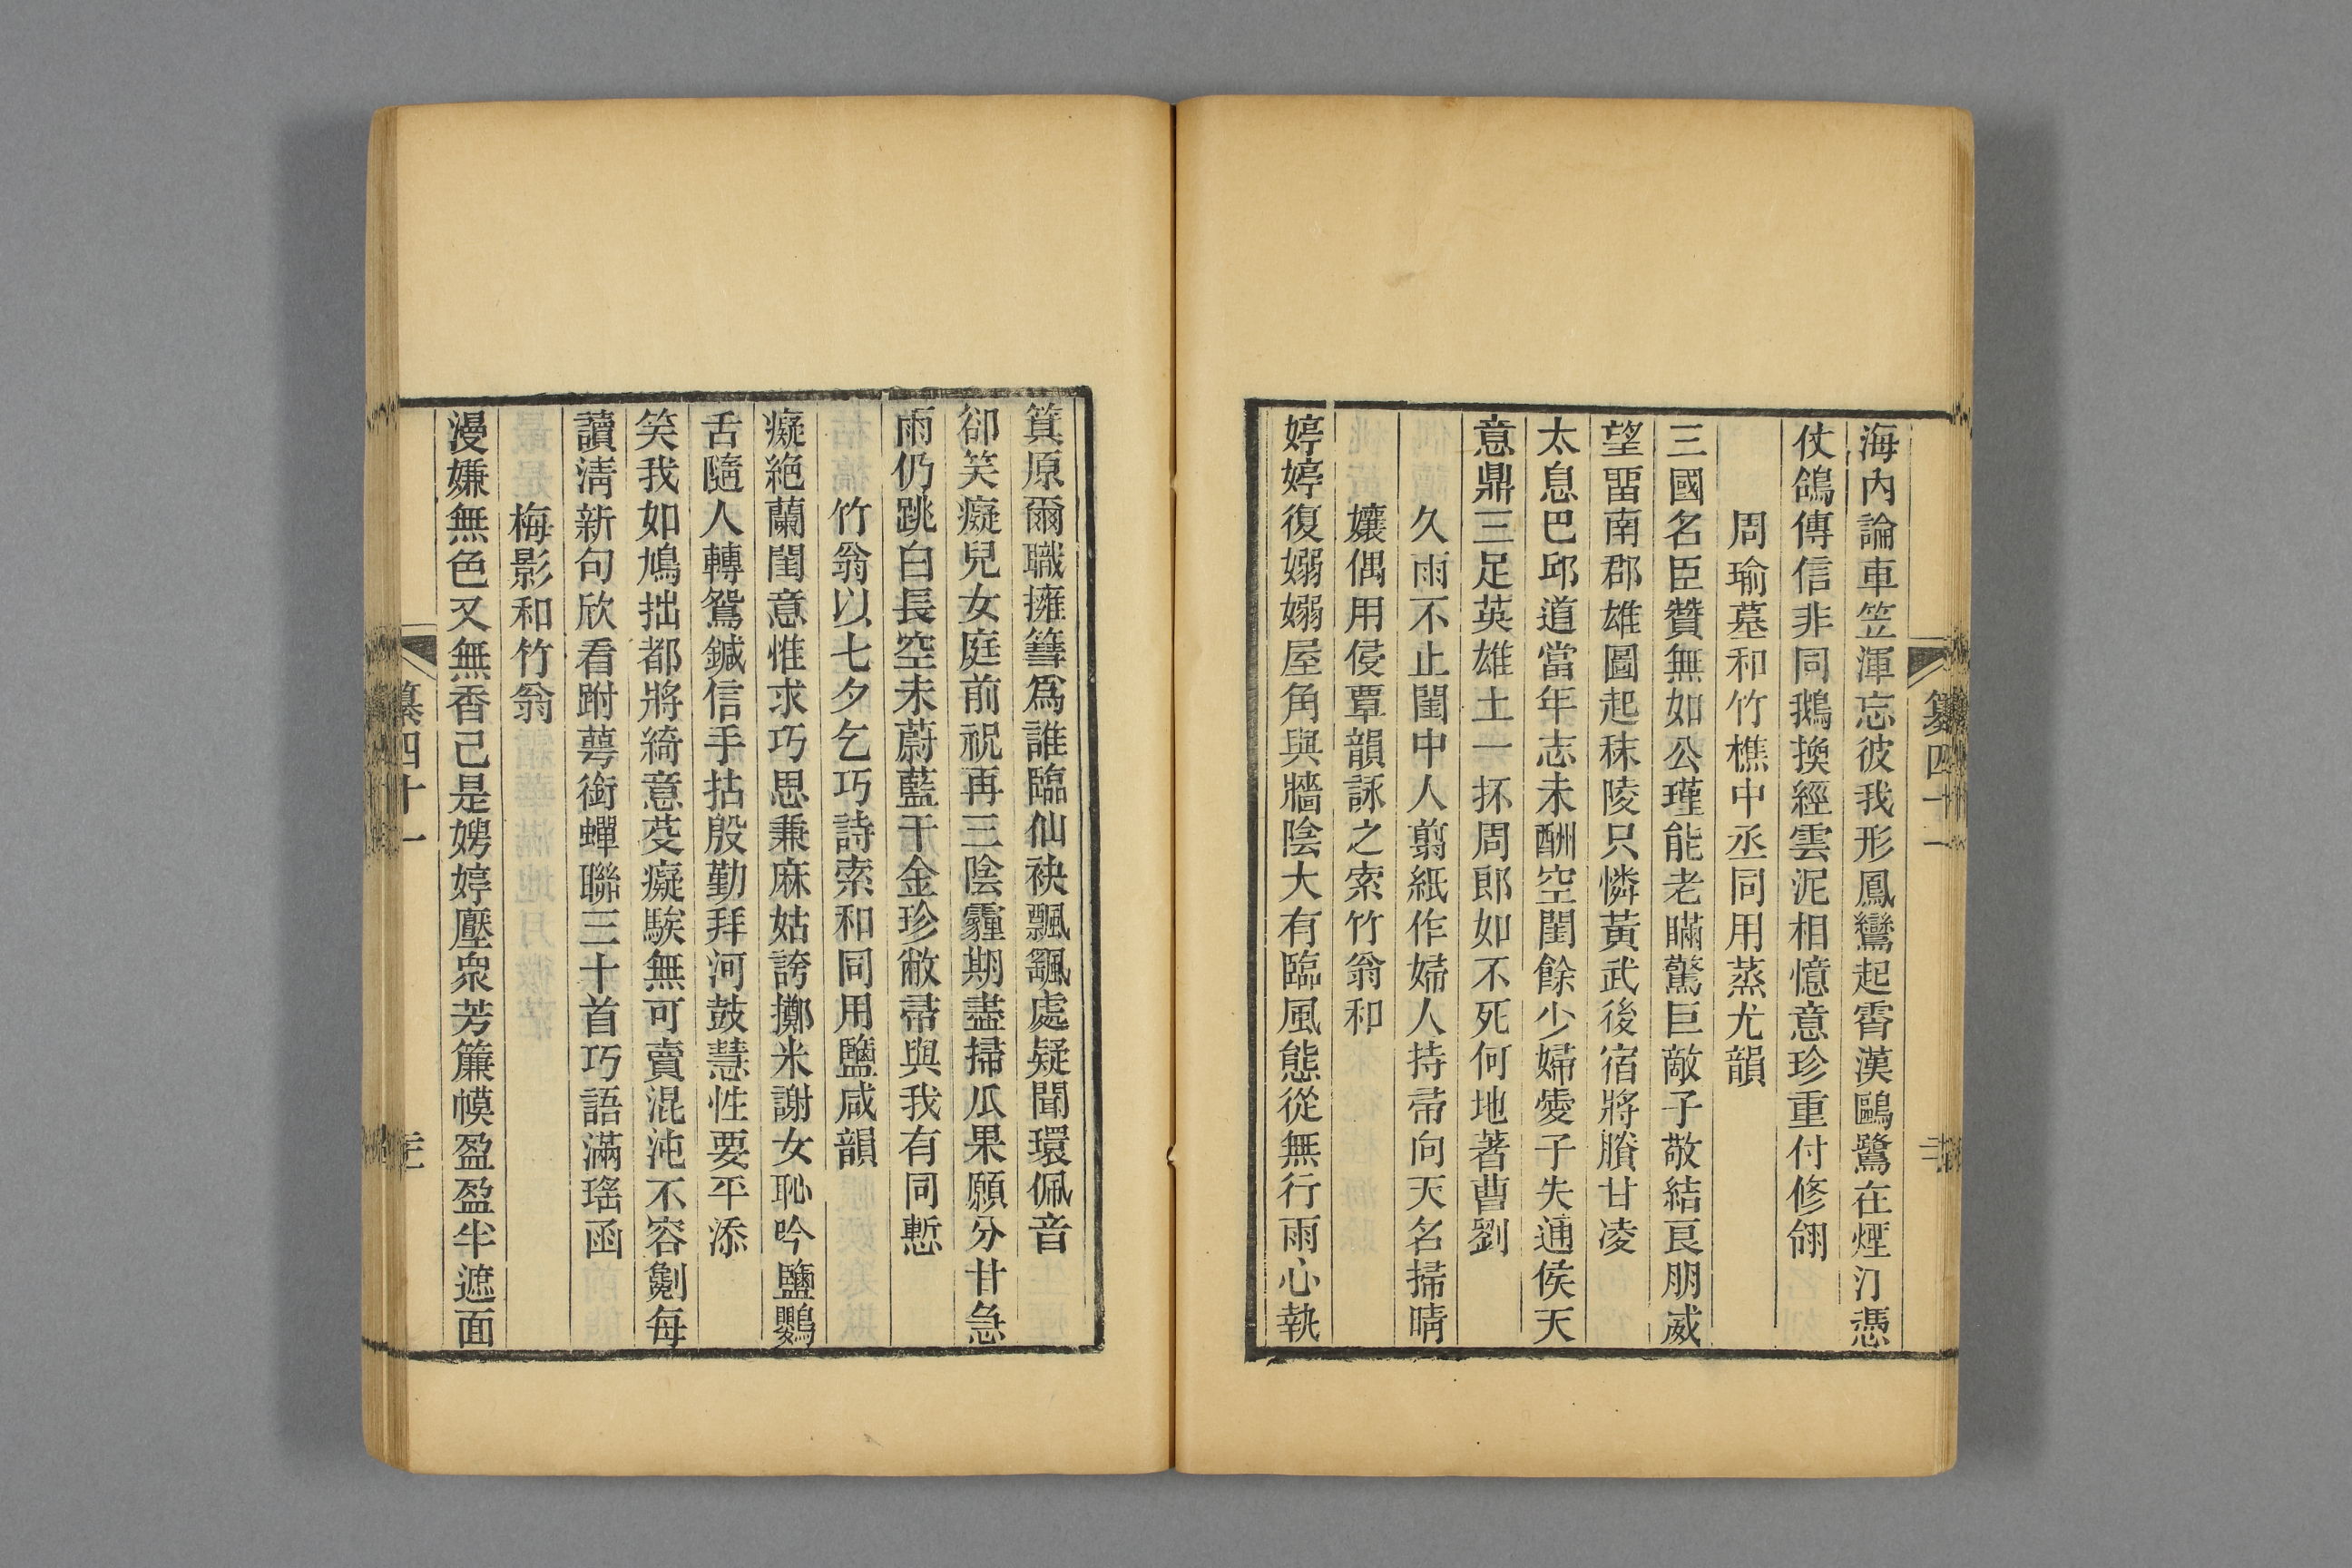 海內論車笠渾忘彼我形鳳鸞起霄漢鷗鷺在煙汀憑
仗鴿傳信非同鵝換經雲泥相憶意珍重付修翎
周瑜墓和竹樵中丞同用蒸尤韻
三國名臣贊無如公瑾能老瞞驚巨敵子敬結良朋威
望畱南郡雄圖起秣陵只憐黃武後宿將賸甘凌
太息巴邱道當年志未酬空閨餘少婦愛子失通侯天
意鼎三足英雄土一抔周郎如不死何地著曹劉
久雨不止閨中人翦紙作婦人持帚向天名掃晴
孃偶用侵覃韻詠之索竹翁和
婷婷復嫋嫋屋角與牆陰大有臨風態從無行雨心執
箕原爾職擁篲爲誰臨仙袂飄颻處疑聞環佩音
卻笑癡兒女庭前祝再三陰霾期盡掃瓜果願分甘急
雨仍跳白長空未蔚藍千金珍敝帚與我有同慙
竹翁以七夕乞巧詩索和同用鹽咸韻
癡絕蘭閨意惟求巧思兼麻姑誇擲米謝女恥吟鹽鸚
舌隨人轉鴛鍼信手拈殷勤拜河鼓慧性要平添
笑我如鳩拙都將綺意芟癡騃無可賣混沌不容劖每
讀淸新句欣看跗萼銜蟬聯三十首巧語滿瑤函
梅影和竹翁
漫嫌無色又無香己是娉婷壓衆芳簾幙盈盈半遮面
纂四十一